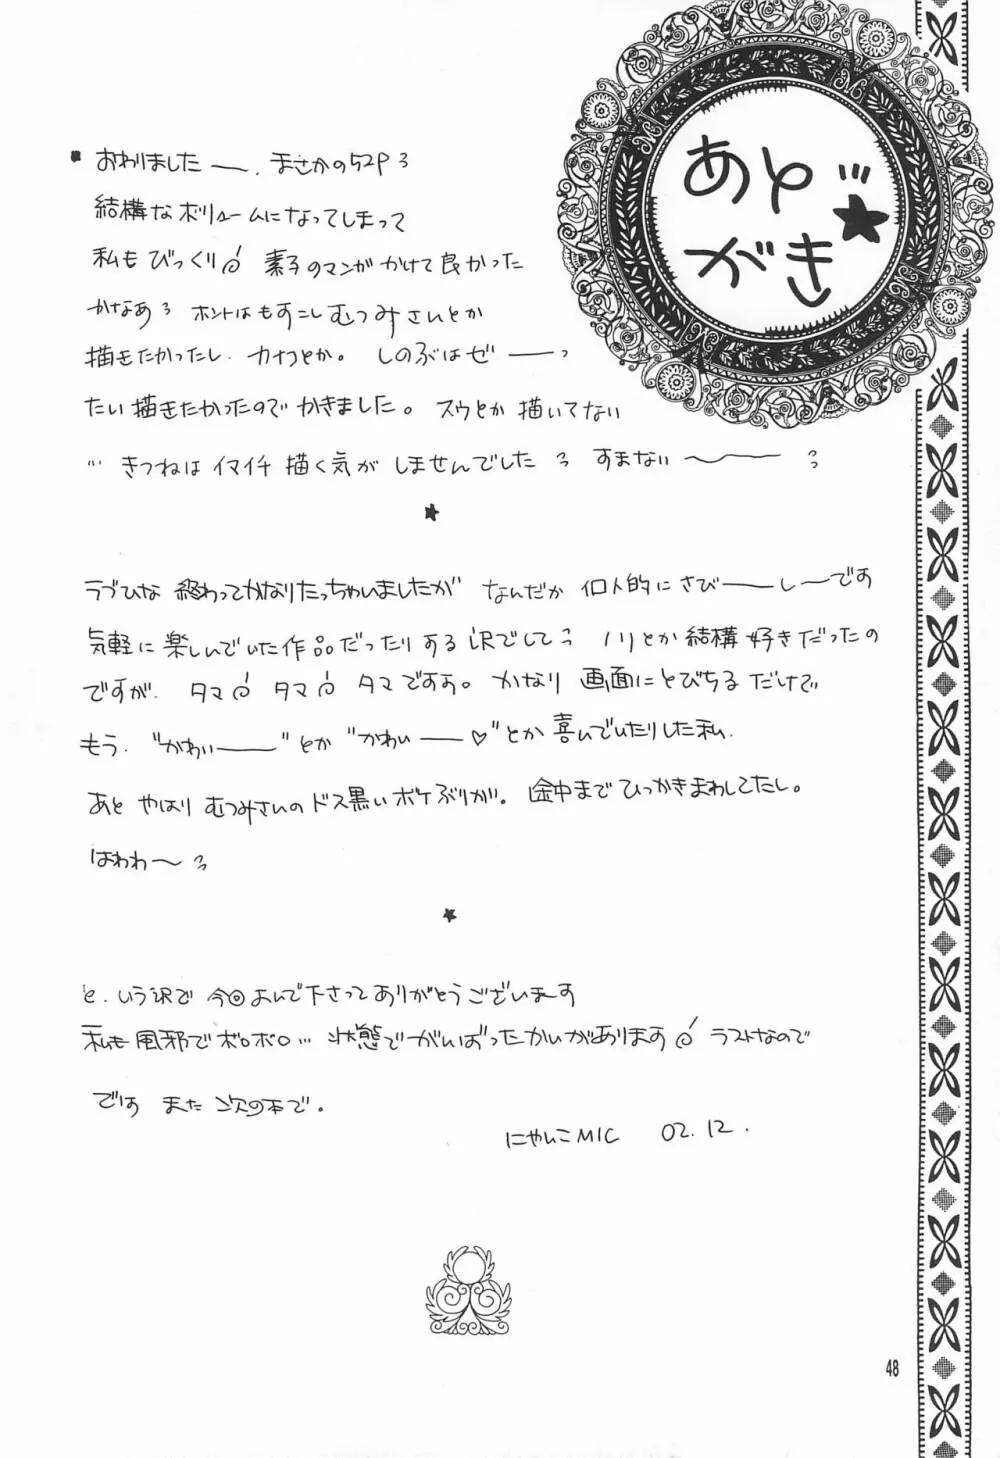 あと
がき
■ おわりましたー、まさかの52P
結構なボリュームになってしまって
私もびっくり 素子のマンガかけて良かった
かなあ ホントはもすこしむつみさんとか
描きたかったし、カナコとか。しのぶはぜーっ
たい描きたかったのでかきました。スウとか描いてない
… きつねはイマイチ描く気がしませんでした すまない〜
★
ラブひな 終わってかなりたっちゃいましたが なんだか個人的にさびーしーです
気軽に楽しんでいた作品だったりする訳でして ノリとか結構好きだったの
ですが、タマ タマ タマですよ。かなり画面にとびちるだけで
もう、"かわいー"とか"かわいー♡"とか喜んでいたりした私、
あと やはり むつみさんのドス黒いボケぶりが。途中までひっかきまわしてたし。
はわわ〜
★
と、いう訳で 今回よんで下さってありがとうございまーす
私も風邪でボロボロ… 状態でがんばったかいがあります ラストなので
では また 次の本で。
にゃんこMIC 02.12.
48